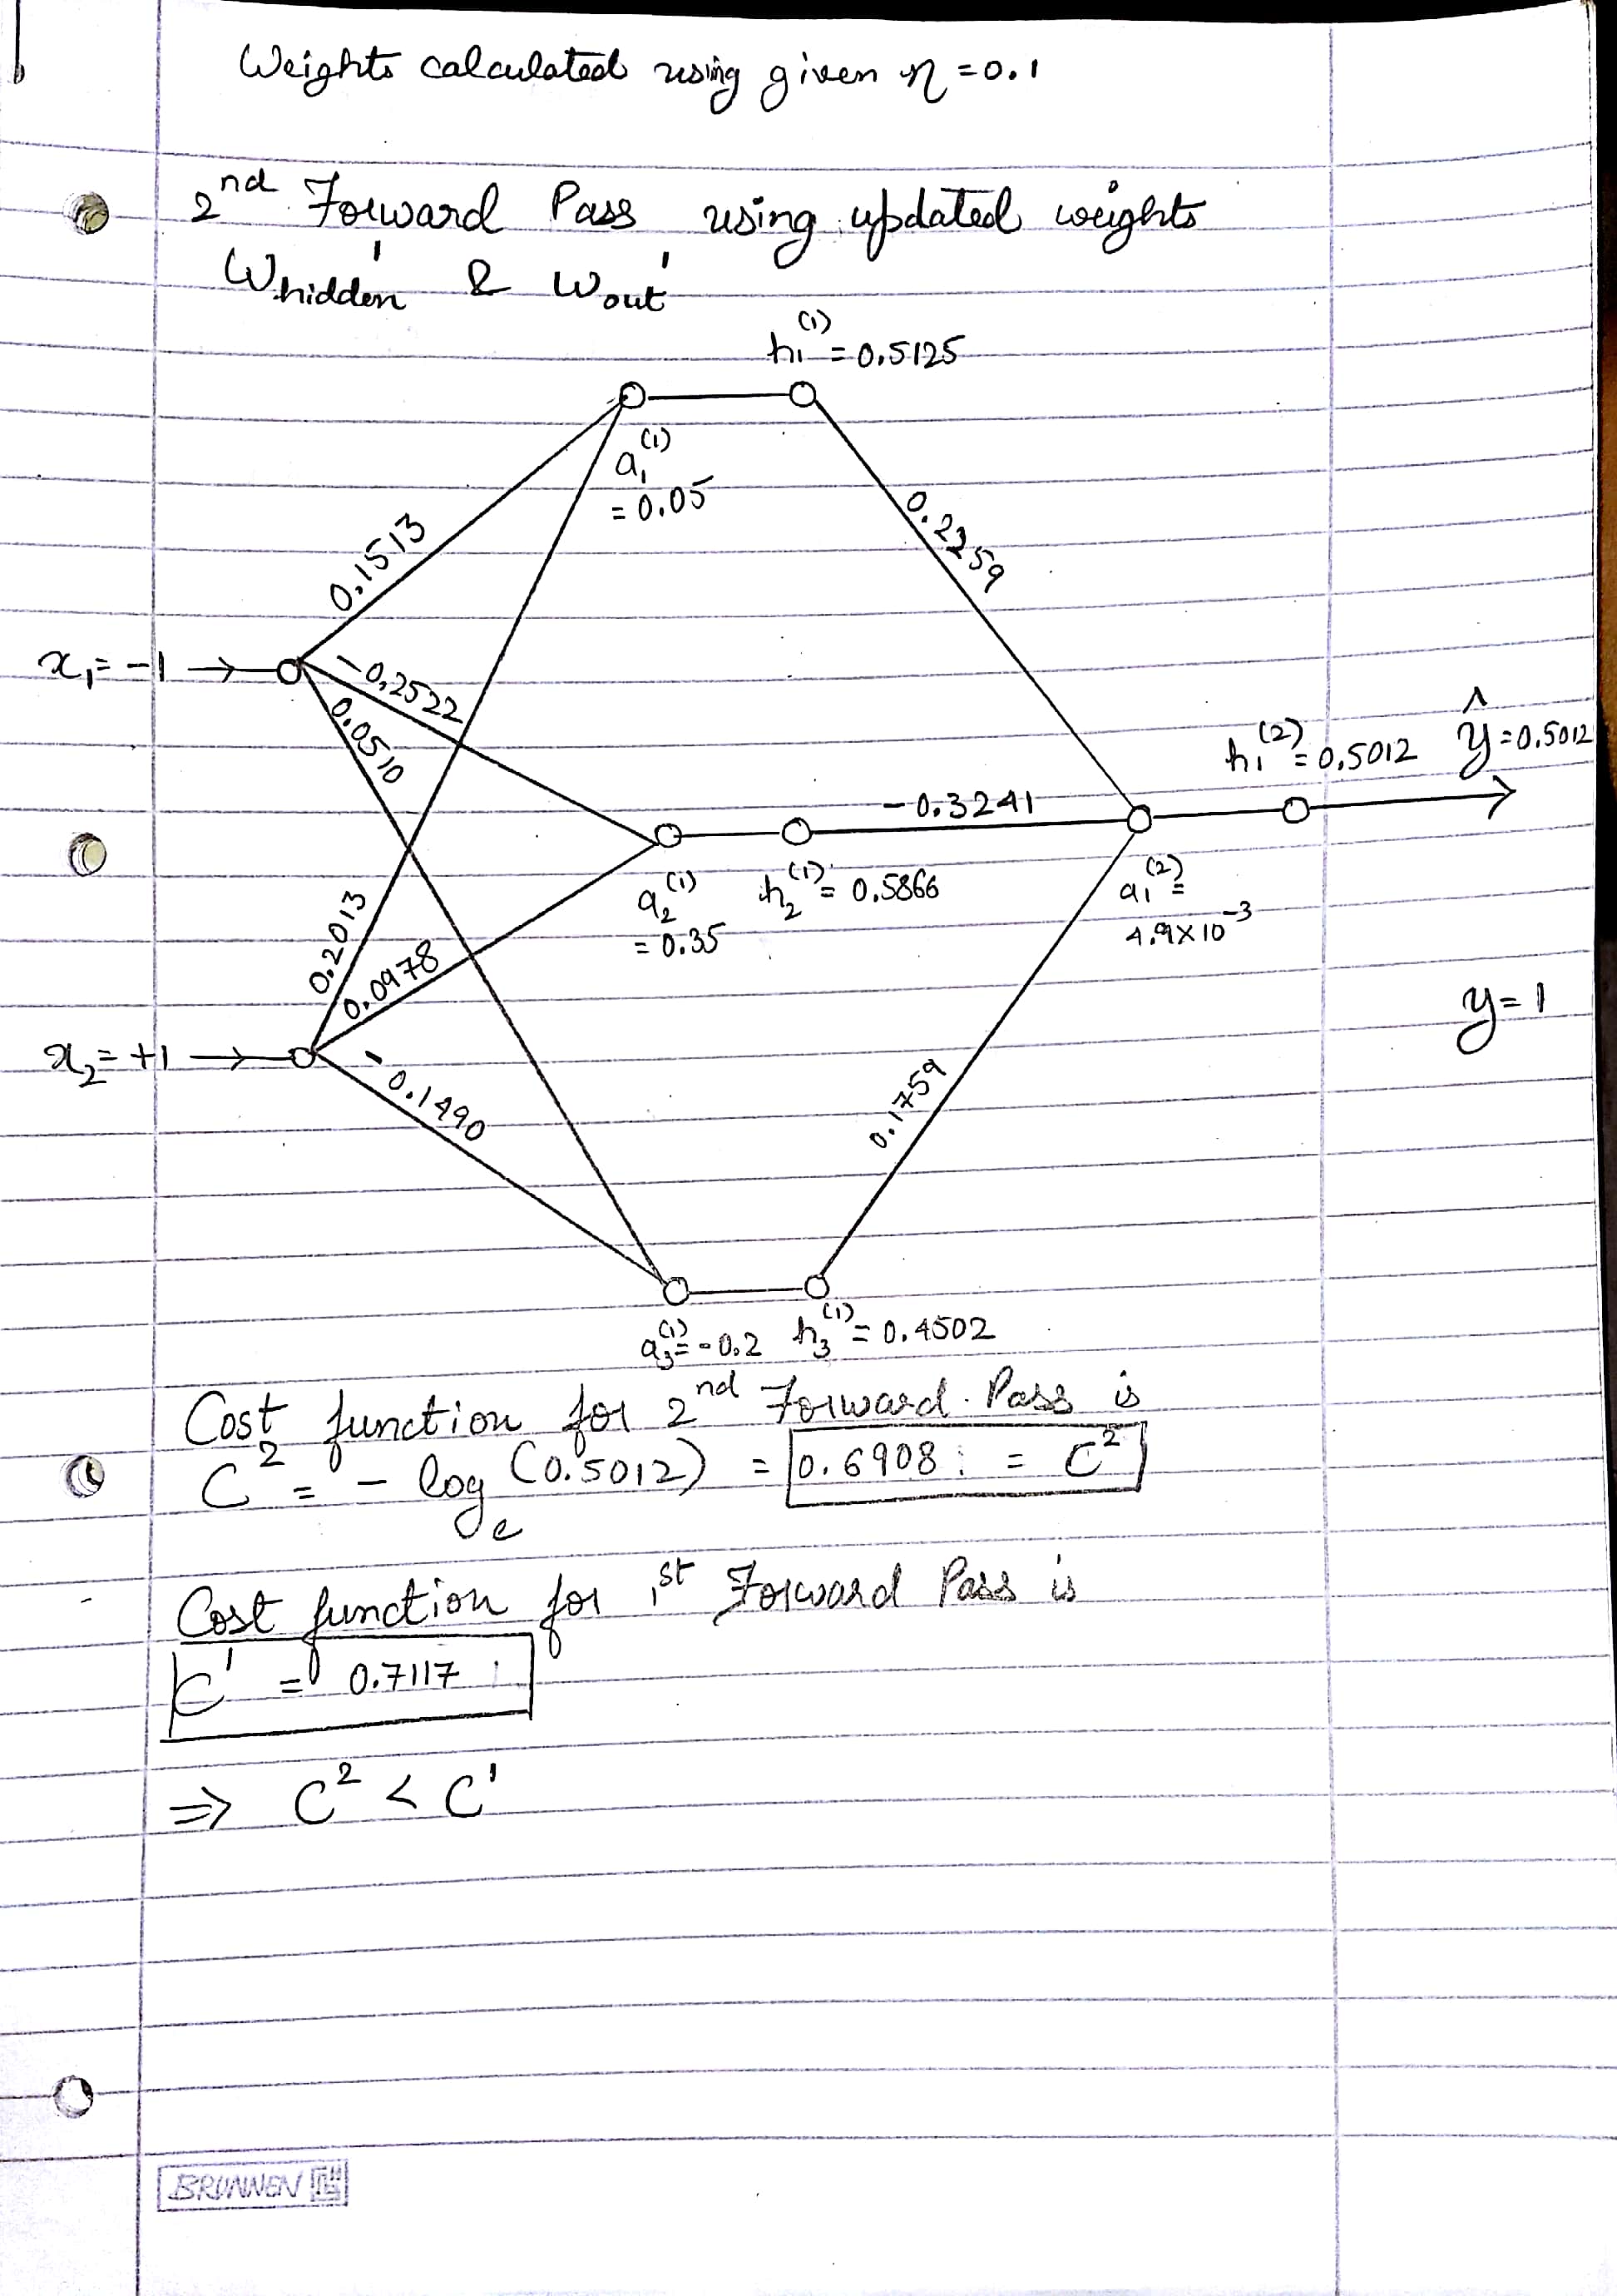 Weights calculated using given η = 0.1
2nd Forward Pass using updated weights
Whidden' & Wout'
h1(1) = 0.5125
a1(1)
= 0.05
0.1513
0.2259
x1 = -1
-0.2522
0.0510
h1(2) = 0.5012 ŷ = 0.5012
-0.3241
a2(1)
= 0.35
h2(1) = 0.5866
a1(2) =
4.9 x 10-3
0.2013
0.0978
y = 1
x2 = +1
-0.1490
0.1759
a3(1) = -0.2 h3(1) = 0.4502
Cost function for 2nd Forward Pass is
C2 = - loge (0.5012) = 0.6908 = C2
Cost function for 1st Forward Pass is
C1 = 0.7117
⇒ C2 < C1
BRUNNEN